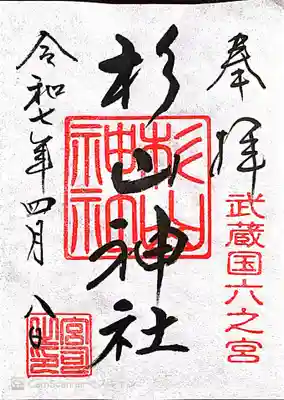 奉拝
武蔵国六之宮
杉山神社
杉山
神社
令和七年四月八日
CamScanner